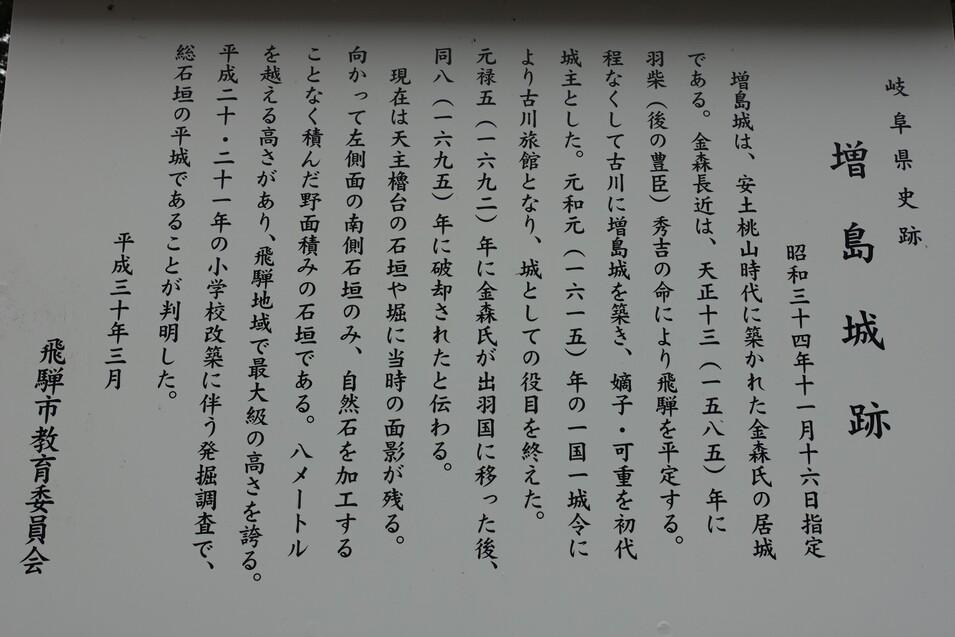 岐阜県史跡
増島城跡
昭和三十四年十一月十六日指定
増島城は、安土桃山時代に築かれた金森氏の居城
である。金森長近は、天正十三（一五八五）年に
羽柴（後の豊臣）秀吉の命により飛騨を平定する。
程なくして古川に増島城を築き、嫡子・可重を初代
城主とした。元和元（一六一五）年の一国一城令に
より古川旅館となり、城としての役目を終えた。
元禄五（一六九二）年に金森氏が出羽国に移った後、
同八（一六九五）年に破却されたと伝わる。
現在は天主櫓台の石垣や堀に当時の面影が残る。
向かって左側面の南側石垣のみ、自然石を加工する
ことなく積んだ野面積みの石垣である。八メートル
を越える高さがあり、飛騨地域で最大級の高さを誇る。
平成二十・二十一年の小学校改築に伴う発掘調査で、
総石垣の平城であることが判明した。
平成三十年三月
飛騨市教育委員会